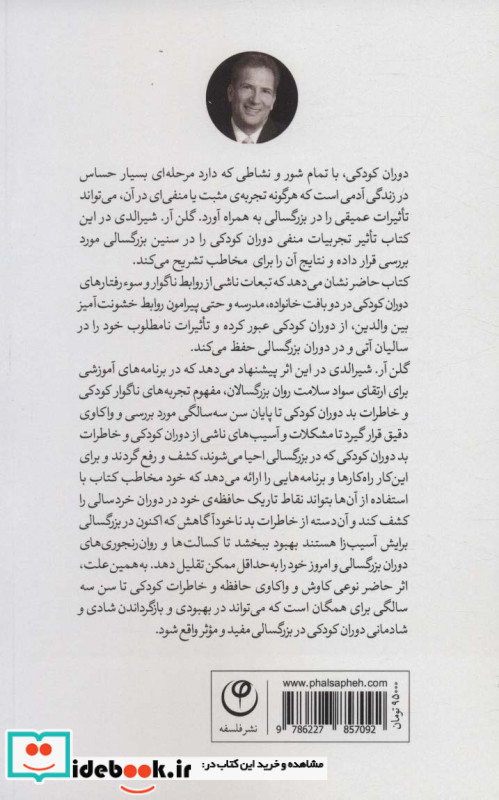 دوران کودکی، با تمام شور و نشاطی که دارد مرحله‌ای بسیار حساس
در زندگی آدمی است که هرگونه تجربه‌ی مثبت یا منفی‌ای در آن، می‌تواند
تأثیرات عمیقی را در بزرگسالی به همراه آورد. گلن آر. شیرالدی در این
کتاب تأثیر تجربیات منفی دوران کودکی را در سنین بزرگسالی مورد
بررسی قرار داده و نتایج آن را برای مخاطب تشریح می‌کند.
کتاب حاضر نشان می‌دهد که تبعات ناشی از روابط ناگوار و سوء رفتارهای
دوران کودکی در دو بافت خانواده، مدرسه و حتی پیرامون روابط خشونت‌آمیز
بین والدین، از دوران کودکی عبور کرده و تأثیرات نامطلوب خود را در
سالیان آتی و در دوران بزرگسالی حفظ می‌کند.
گلن آر. شیرالدی در این اثر پیشنهاد می‌دهد که در برنامه‌های آموزشی
برای ارتقای سواد سلامت روان بزرگسالان، مفهوم تجربه‌های ناگوار کودکی
و خاطرات بد دوران کودکی تا پایان سن سه‌سالگی مورد بررسی و واکاوی
دقیق قرار گیرد تا مشکلات و آسیب‌های ناشی از دوران کودکی و خاطرات
بد دوران کودکی که در بزرگسالی احیا می‌شوند، کشف و رفع گردند و برای
این‌کار راه‌کارها و برنامه‌هایی را ارائه می‌دهد که خود مخاطب کتاب با
استفاده از آن‌ها بتواند نقاط تاریک حافظه‌ی خود در دوران خردسالی را
کشف کند و آن دسته از خاطرات بد ناخودآگاهش که اکنون در بزرگسالی
برایش آسیب‌زا هستند بهبود ببخشد تا کسالت‌ها و روان‌رنجوری‌های
دوران بزرگسالی و امروز خود را به‌حداقل ممکن تقلیل دهد. به‌همین علت،
اثر حاضر نوعی کاوش و واکاوی حافظه و خاطرات کودکی تا سن سه
سالگی برای همگان است که می‌تواند در بهبودی و بازگرداندن شادی و
شادمانی دوران کودکی در بزرگسالی مفید و مؤثر واقع شود.
نشر فلسفه
www.phalsapheh.com
9 786227 857092
۹۵۰۰۰ تومان
مشاهده و خرید این کتاب در:
idebook.ir